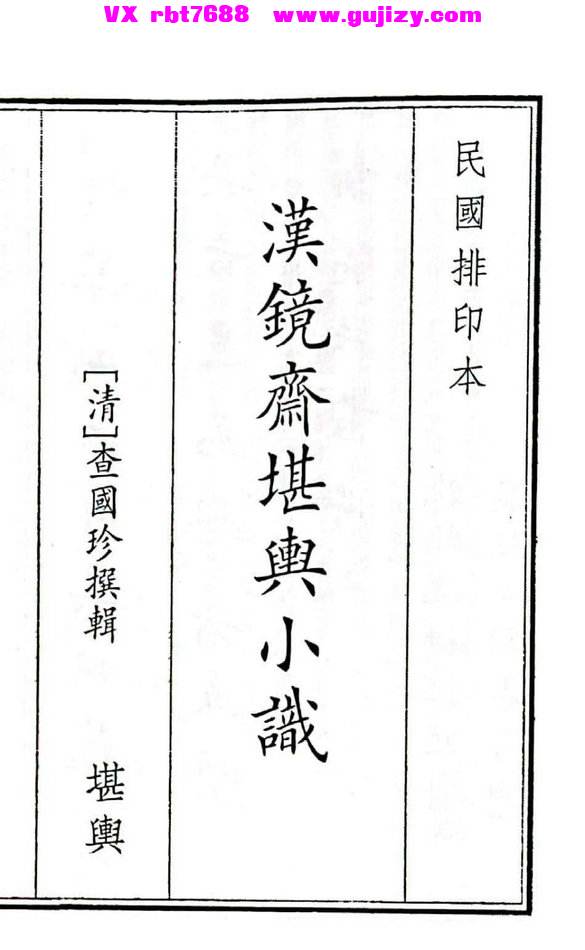 VX rbt7688 www.gujizy.com
民國排印本
漢鏡齋堪輿小識
[清]查國珍撰輯 堪輿